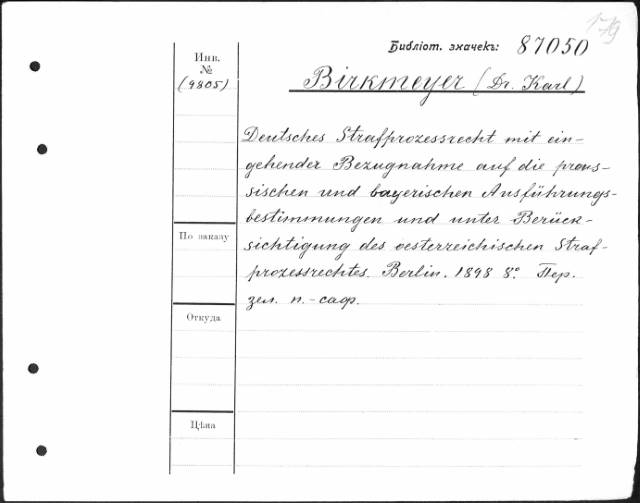 Библіот. значекъ: 87050
Инв.
№
(9805)
Birkmeyer (Dr. Karl)
Deutsches Strafprozessrecht mit ein-
gehender Bezugnahme auf die preus-
sischen und bayerischen Ausführungs-
bestimmungen und unter Berück-
sichtigung des oesterreichischen Straf-
prozessrechtes. Berlin. 1898 8º Пер.
зел. п.-саф.
По заказу
Откуда
Цѣна